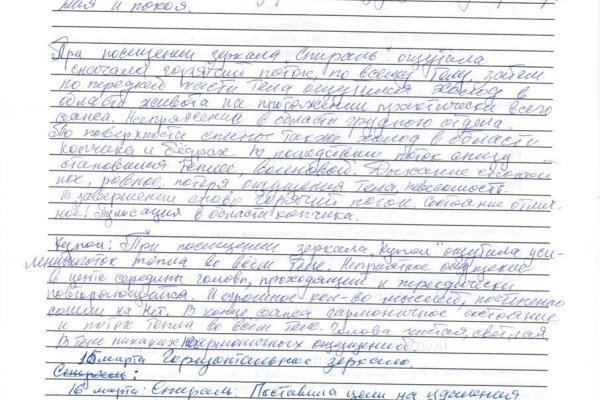 ния и покоя.
При посещении зеркала "Спираль" ощутила
сначала горячий поток, по всему телу, затем
по передней части тела ощущался холод в
области живота на протяжении практически всего
сеанса. Напряжение в области грудного отдела.
По поверхности спины также холод в области
копчика и бёдрах. В последствии поток снизу
становился теплее, волновой. Дыхание спокой
ное, ровное, потеря ощущения тела, невесомость.
В завершении снова горячий поток. Состояние отлич-
ное. Пульсация в области копчика.
Купол: При посещении зеркала "Купол" ощутила уси-
ление поток тепла во всём теле. Неприятное ощущение
в центе середины головы, проходящий и периодически
повторяющийся. И огромное кол-во мыслей, постепенно
сошли на нет. В конце сеанса гармоничное состояние
и поток тепла во всём теле. Голова чистая, светлая
В теле никаких негармоничных ощущений.
15 марта Горизонтальное зеркало.
Спираль:
16 марта: Спираль. Поставила цели на